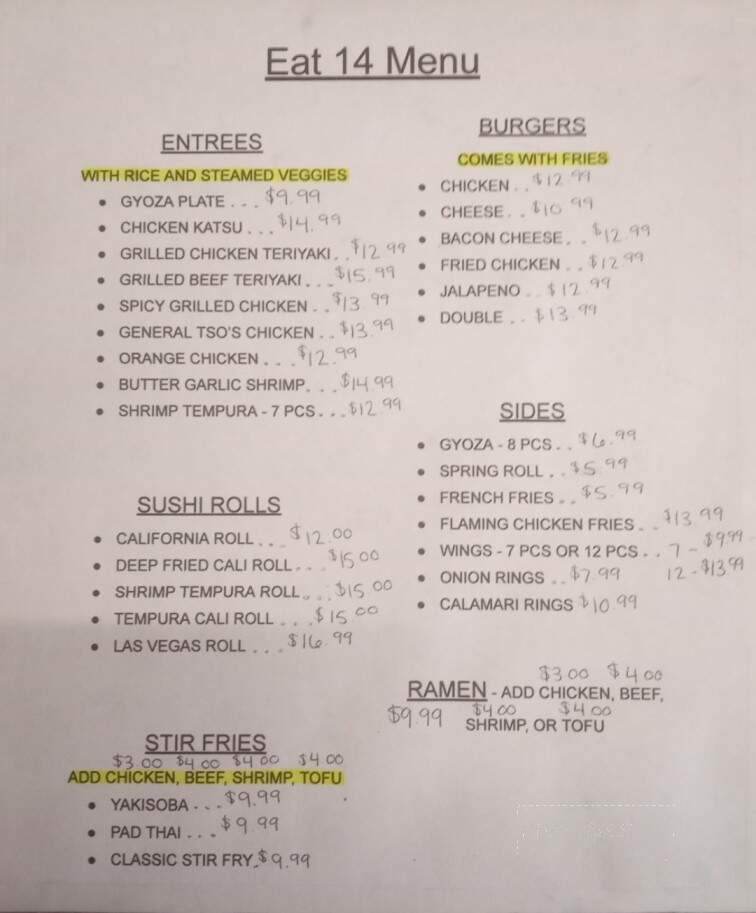 Eat 14 Menu
ENTREES
WITH RICE AND STEAMED VEGGIES
• GYOZA PLATE . . . $9.99
• CHICKEN KATSU . . . $14.99
• GRILLED CHICKEN TERIYAKI. . $12.99
• GRILLED BEEF TERIYAKI . . . $15.99
• SPICY GRILLED CHICKEN . . $13.99
• GENERAL TSO'S CHICKEN . . $13.99
• ORANGE CHICKEN . . . $12.99
• BUTTER GARLIC SHRIMP. . . $14.99
• SHRIMP TEMPURA - 7 PCS . . . $12.99
SUSHI ROLLS
• CALIFORNIA ROLL . . . $12.00
• DEEP FRIED CALI ROLL . . . $15.00
• SHRIMP TEMPURA ROLL . . . $15.00
• TEMPURA CALI ROLL . . . $15.00
• LAS VEGAS ROLL . . . $16.99
STIR FRIES
$3.00 $4.00 $4.00 $4.00
ADD CHICKEN, BEEF, SHRIMP, TOFU
• YAKISOBA . . . $9.99
• PAD THAI . . . $9.99
• CLASSIC STIR FRY. $9.99
BURGERS
COMES WITH FRIES
• CHICKEN . . $12.99
• CHEESE . . $10.99
• BACON CHEESE . . $12.99
• FRIED CHICKEN . . $12.99
• JALAPENO . . $12.99
• DOUBLE . . $13.99
SIDES
• GYOZA - 8 PCS . . $6.99
• SPRING ROLL . . $5.99
• FRENCH FRIES . . $5.99
• FLAMING CHICKEN FRIES . . $13.99
• WINGS - 7 PCS OR 12 PCS . . 7 - $9.99
• ONION RINGS . . $7.99 12 - $13.99
• CALAMARI RINGS $10.99
$3.00 $4.00
RAMEN - ADD CHICKEN, BEEF,
$9.99 $4.00 $4.00
SHRIMP, OR TOFU